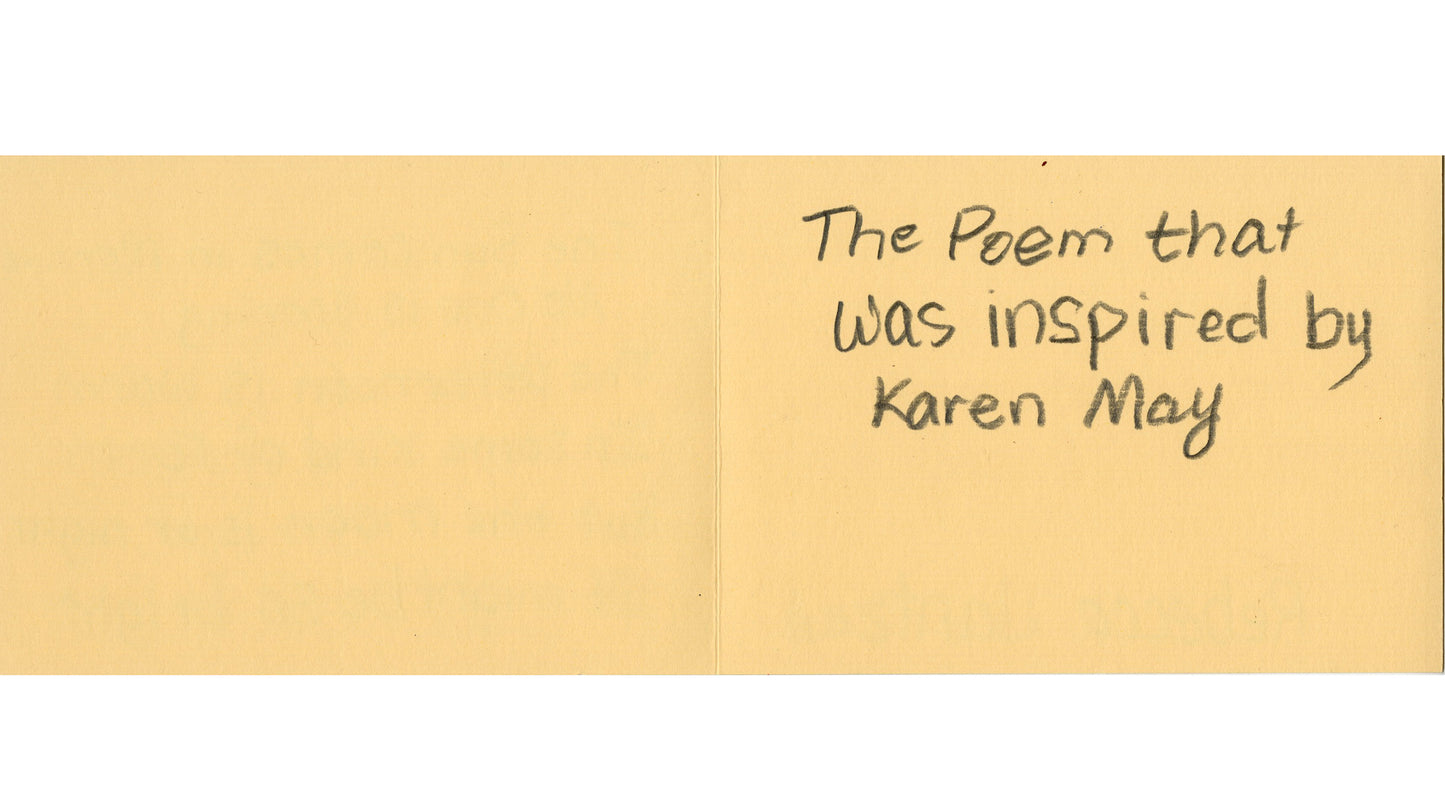 The Poem that
was inspired by
Karen May